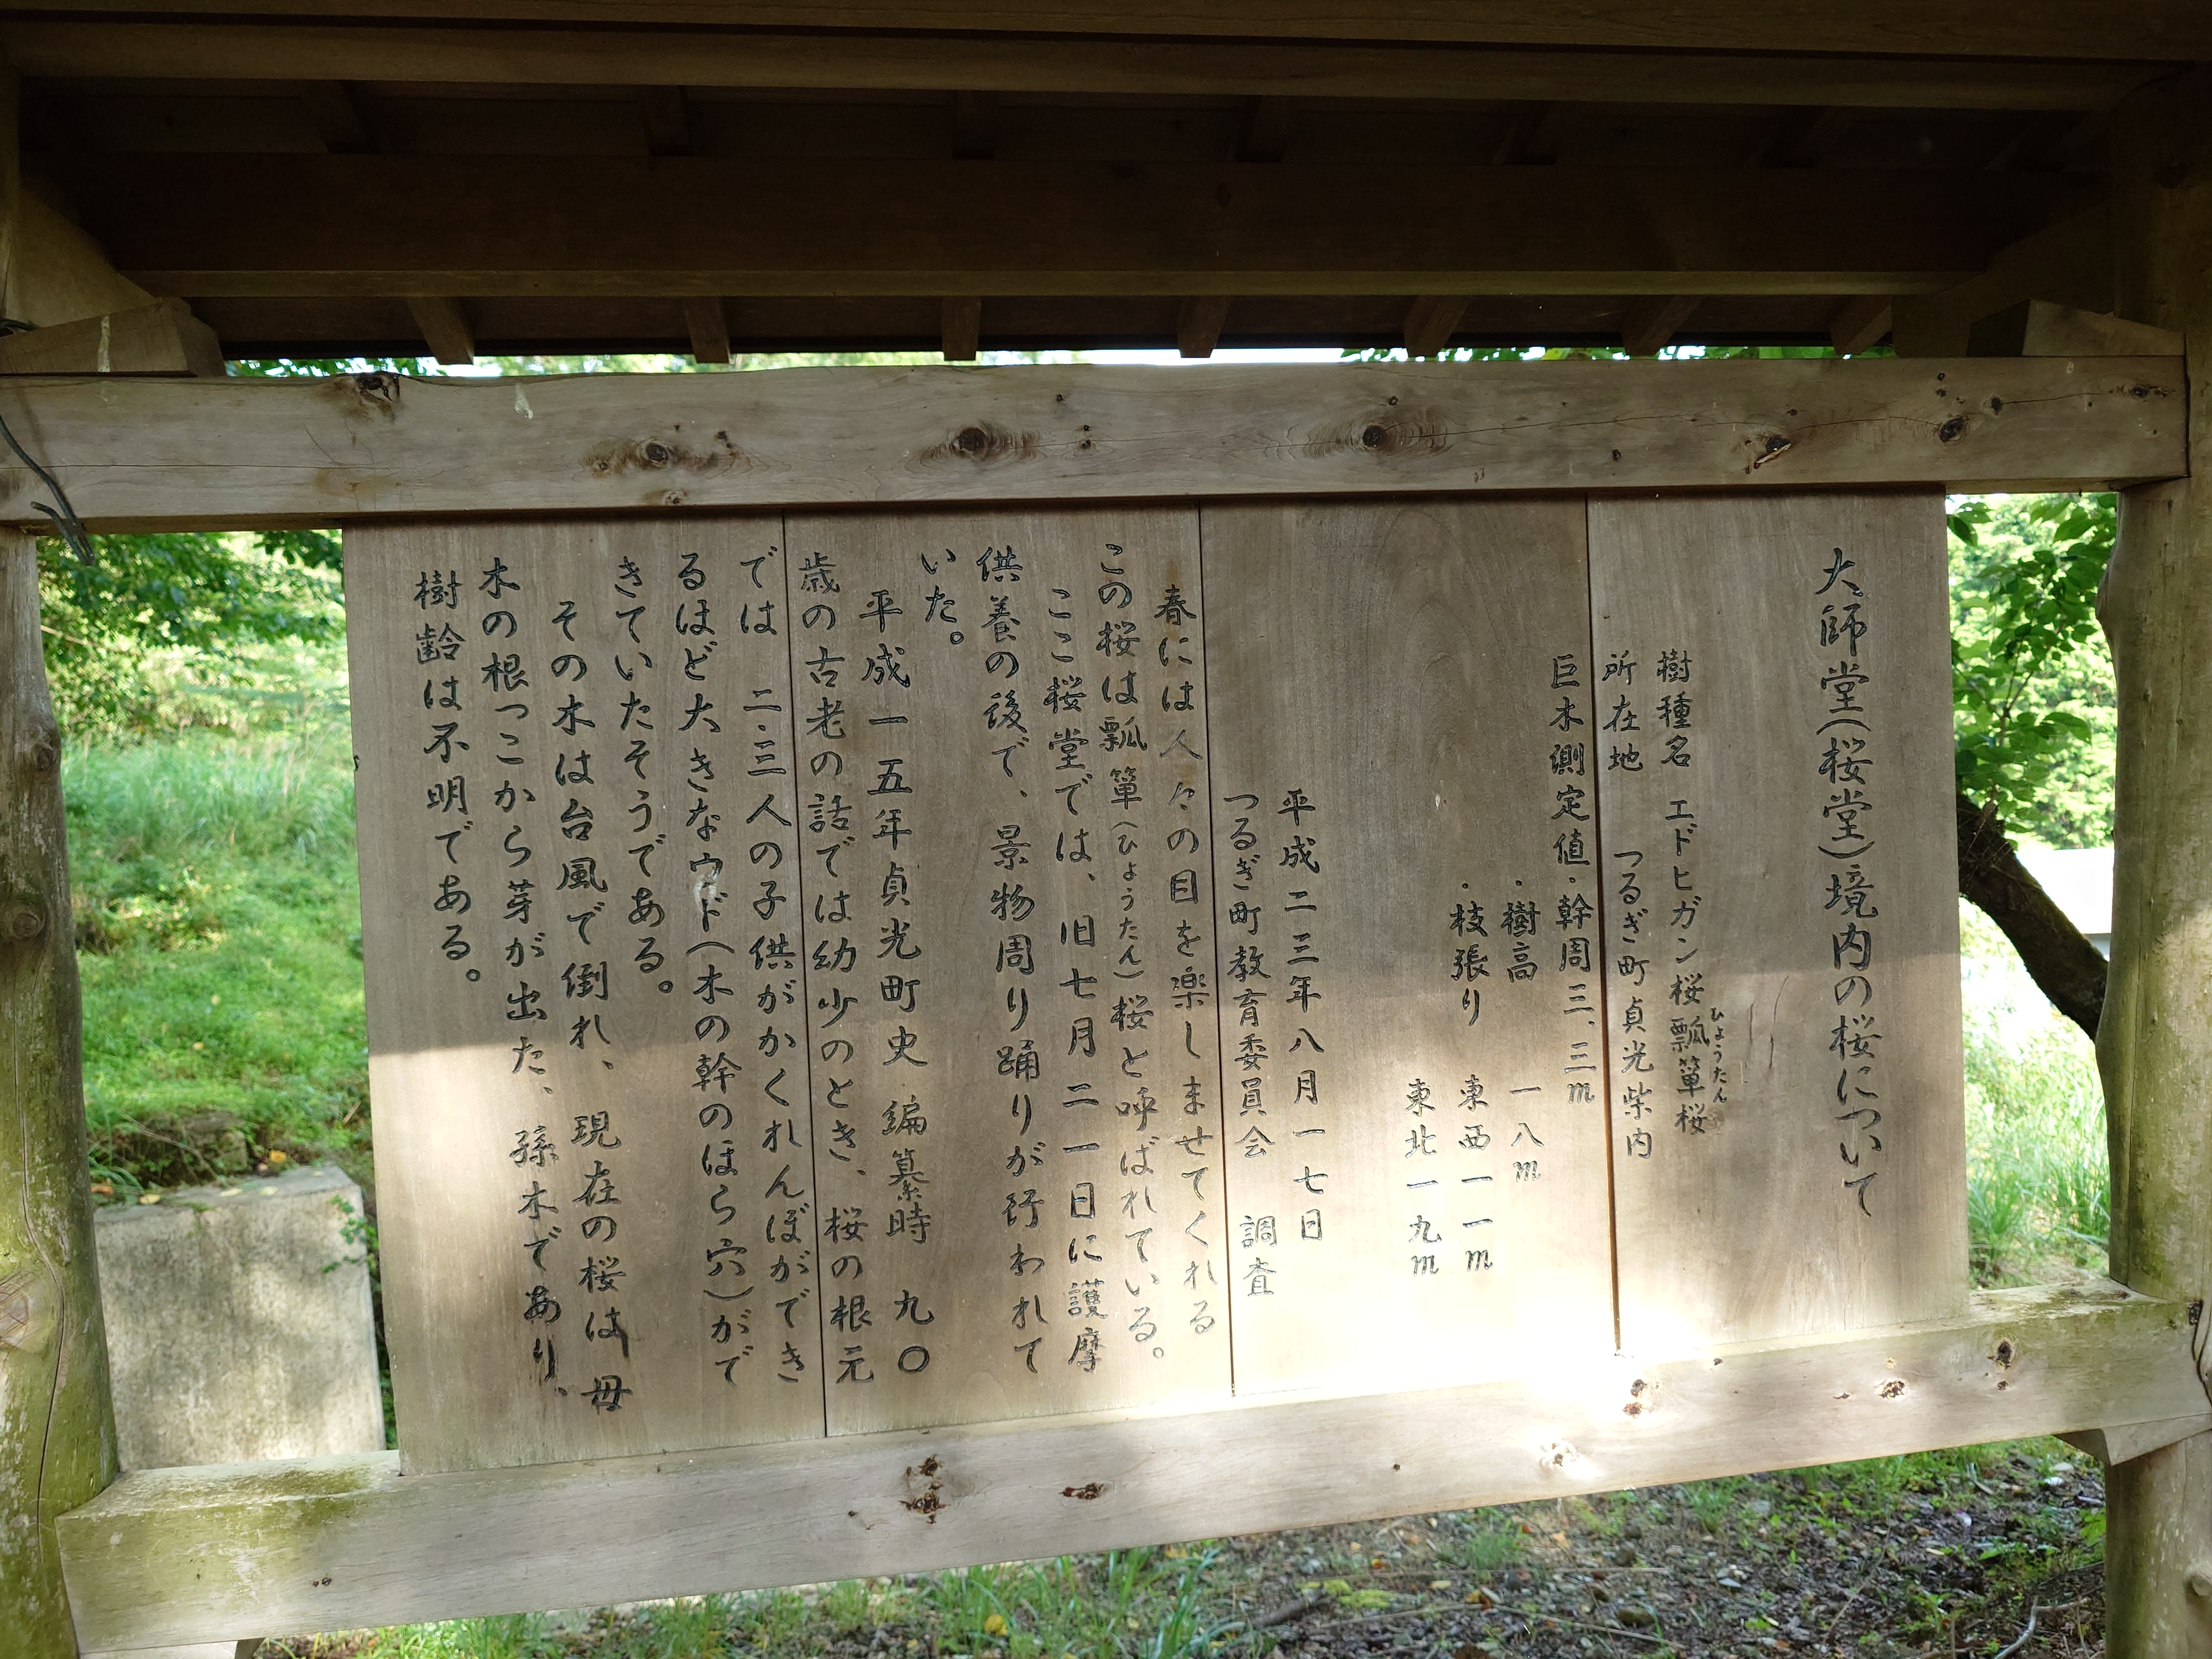 大師堂(桜堂)境内の桜について
樹種名 エドヒガン桜瓢箪桜
ひょうたん
所在地 つるぎ町貞光柴内
巨木測定値・幹周三.三m
・樹高 一八m
・枝張り 東西一一m
東北一九m
平成二三年八月一七日
つるぎ町教育委員会 調査
春には人々の目を楽しませてくれる
この桜は瓢箪(ひょうたん)桜と呼ばれている。
ここ桜堂では、旧七月二一日に護摩
供養の後で、景物周り踊りが行われて
いた。
平成一五年貞光町史編纂時 九〇
歳の古老の話では幼少のとき、桜の根元
では 二・三人の子供がかくれんぼができ
るほど大きなウド(木の幹のほら穴)がで
きていたそうである。
その木は台風で倒れ、現在の桜は 母
木の根っこから芽が出た、孫木であり、
樹齢は不明である。